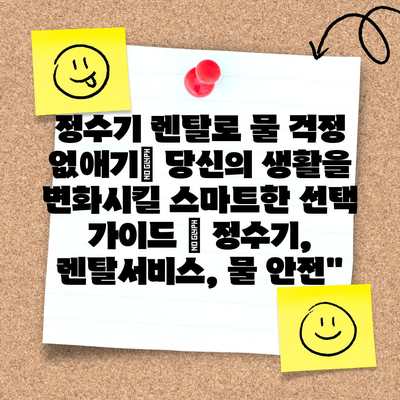 정수기 렌탈로 물 걱정
없애기| 당신의 생활을
변화시킬 스마트한 선택
가이드 | 정수기,
렌탈서비스, 물 안전"